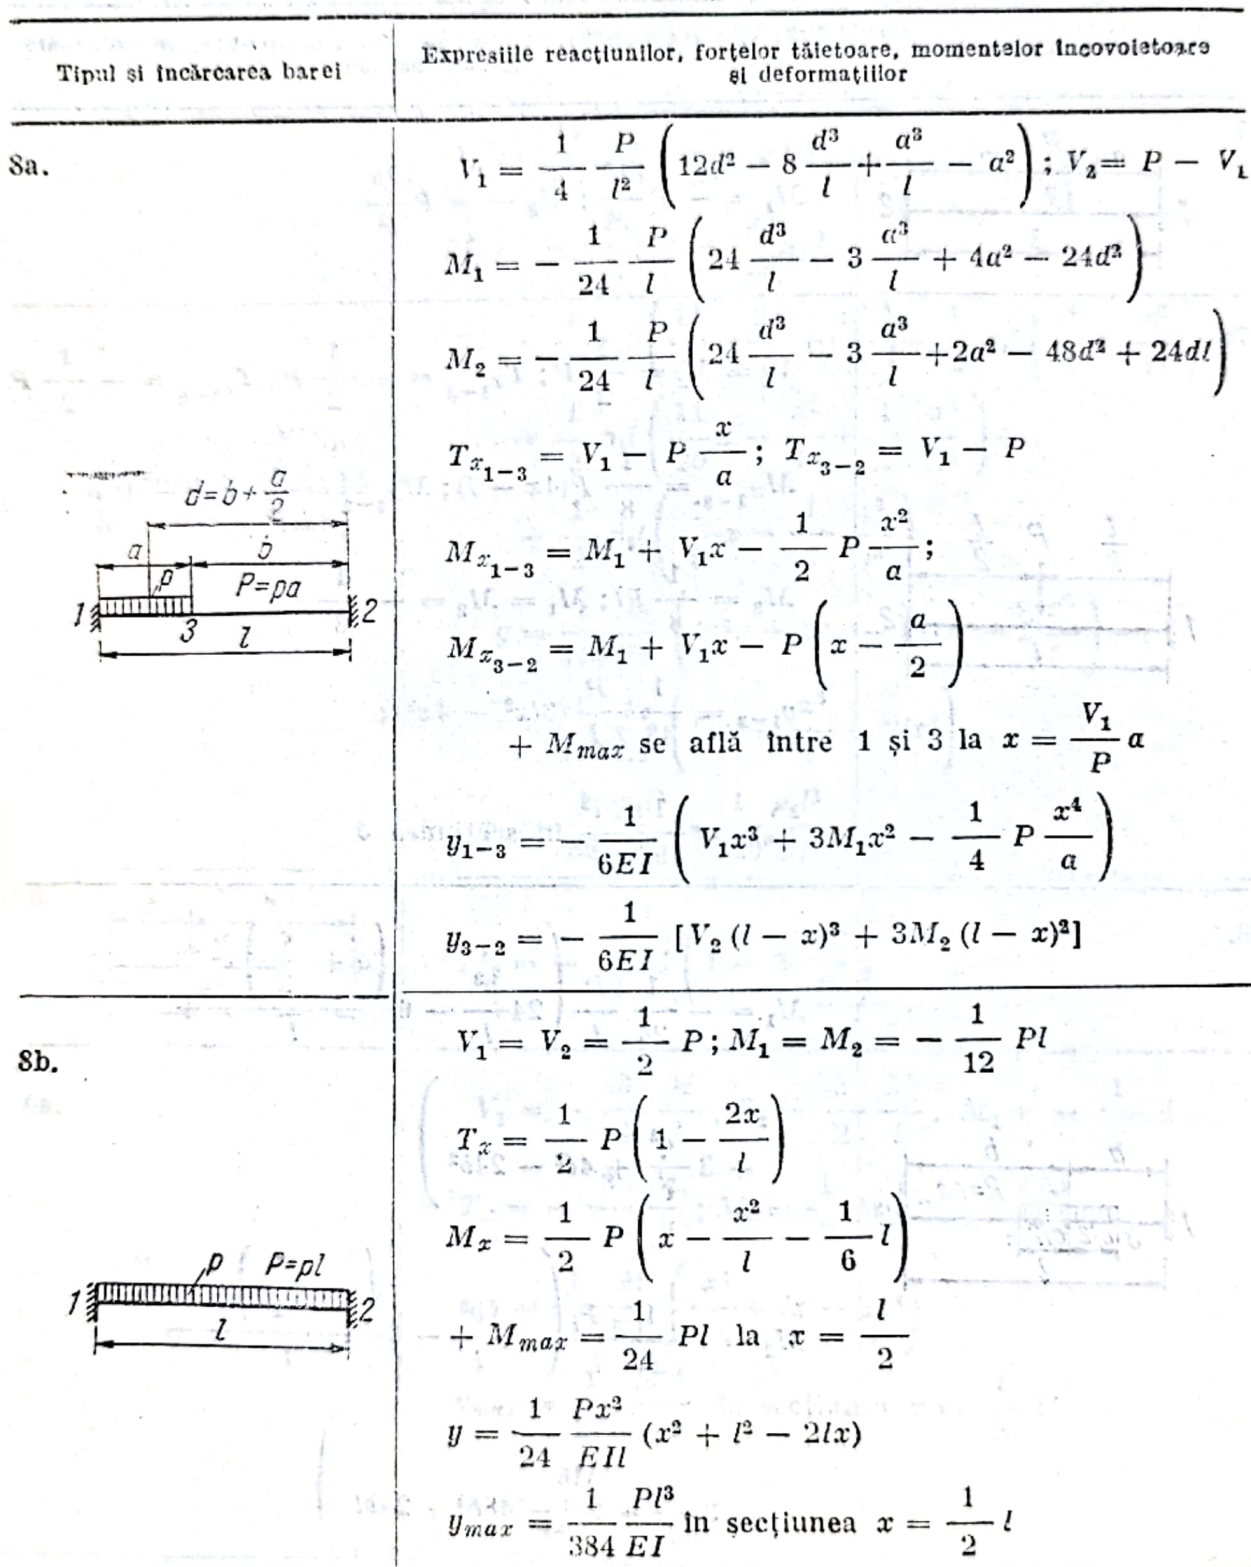 Tipul și încărcarea barei
Expresiile reacțiunilor, forțelor tăietoare, momentelor încovoietoare
și deformațiilor
8a.
V₁ = 1/4 P/l² (12d² − 8 d³/l + a³/l − a²) ; V₂ = P − V₁
M₁ = − 1/24 P/l (24 d³/l − 3 a³/l + 4a² − 24d²)
M₂ = − 1/24 P/l (24 d³/l − 3 a³/l + 2a² − 48d² + 24dl)
T_{x₁₋₃} = V₁ − P x/a ; T_{x₃₋₂} = V₁ − P
M_{x₁₋₃} = M₁ + V₁x − 1/2 P x²/a ;
M_{x₃₋₂} = M₁ + V₁x − P (x − a/2)
+ M_{max} se află între 1 și 3 la x = V₁/P a
y₁₋₃ = − 1/6EI (V₁x³ + 3M₁x² − 1/4 P x⁴/a)
y₃₋₂ = − 1/6EI [V₂ (l − x)³ + 3M₂ (l − x)²]
d=b+a/2
a
b
p
P=pa
1
3
2
l
8b.
V₁ = V₂ = 1/2 P ; M₁ = M₂ = − 1/12 Pl
T_x = 1/2 P (1 − 2x/l)
M_x = 1/2 P (x − x²/l − 1/6 l)
+ M_{max} = 1/24 Pl la x = l/2
y = 1/24 Px²/EIl (x² + l² − 2lx)
y_{max} = 1/384 Pl³/EI în secțiunea x = 1/2 l
p
P=pl
1
2
l